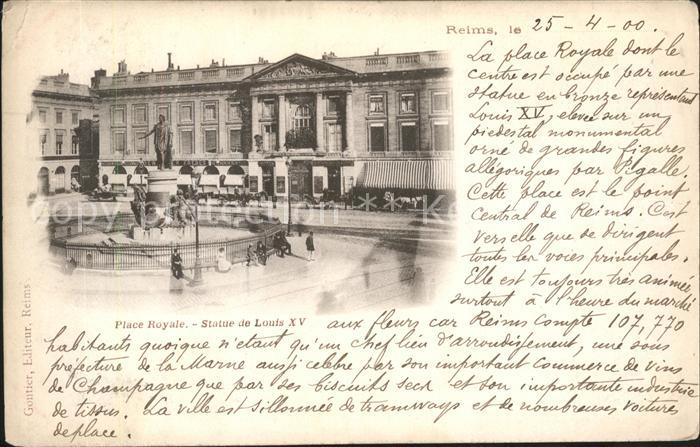 Reims, le 25 - 4 - 00.
La place Royale dont le
centre est occupé par une
statue en bronze représentant
Louis XV, elever sur un
piedestal monumental
orné de grandes figures
allégoriques par Pigalle.
Cette place est le point
Central de Reims. C'est
vers elle que se dirigent
toutes les voies principales.
Elle est toujours très animée
surtout à l'heure du marché
Place Royale. - Statue de Louis XV
aux fleurs car Reims compte 107,770
habitants quoique n'étant qu'un chef lieu d'arrondissement, une sous
préfecture de la Marne aussi celebre par son important commerce de vins
de Champagne que par ses biscuits secs et son importante industrie
de tissus. La ville est sillonnée de tramways et de nombreuses voitures
de place.
Gontier, Editeur, Reims